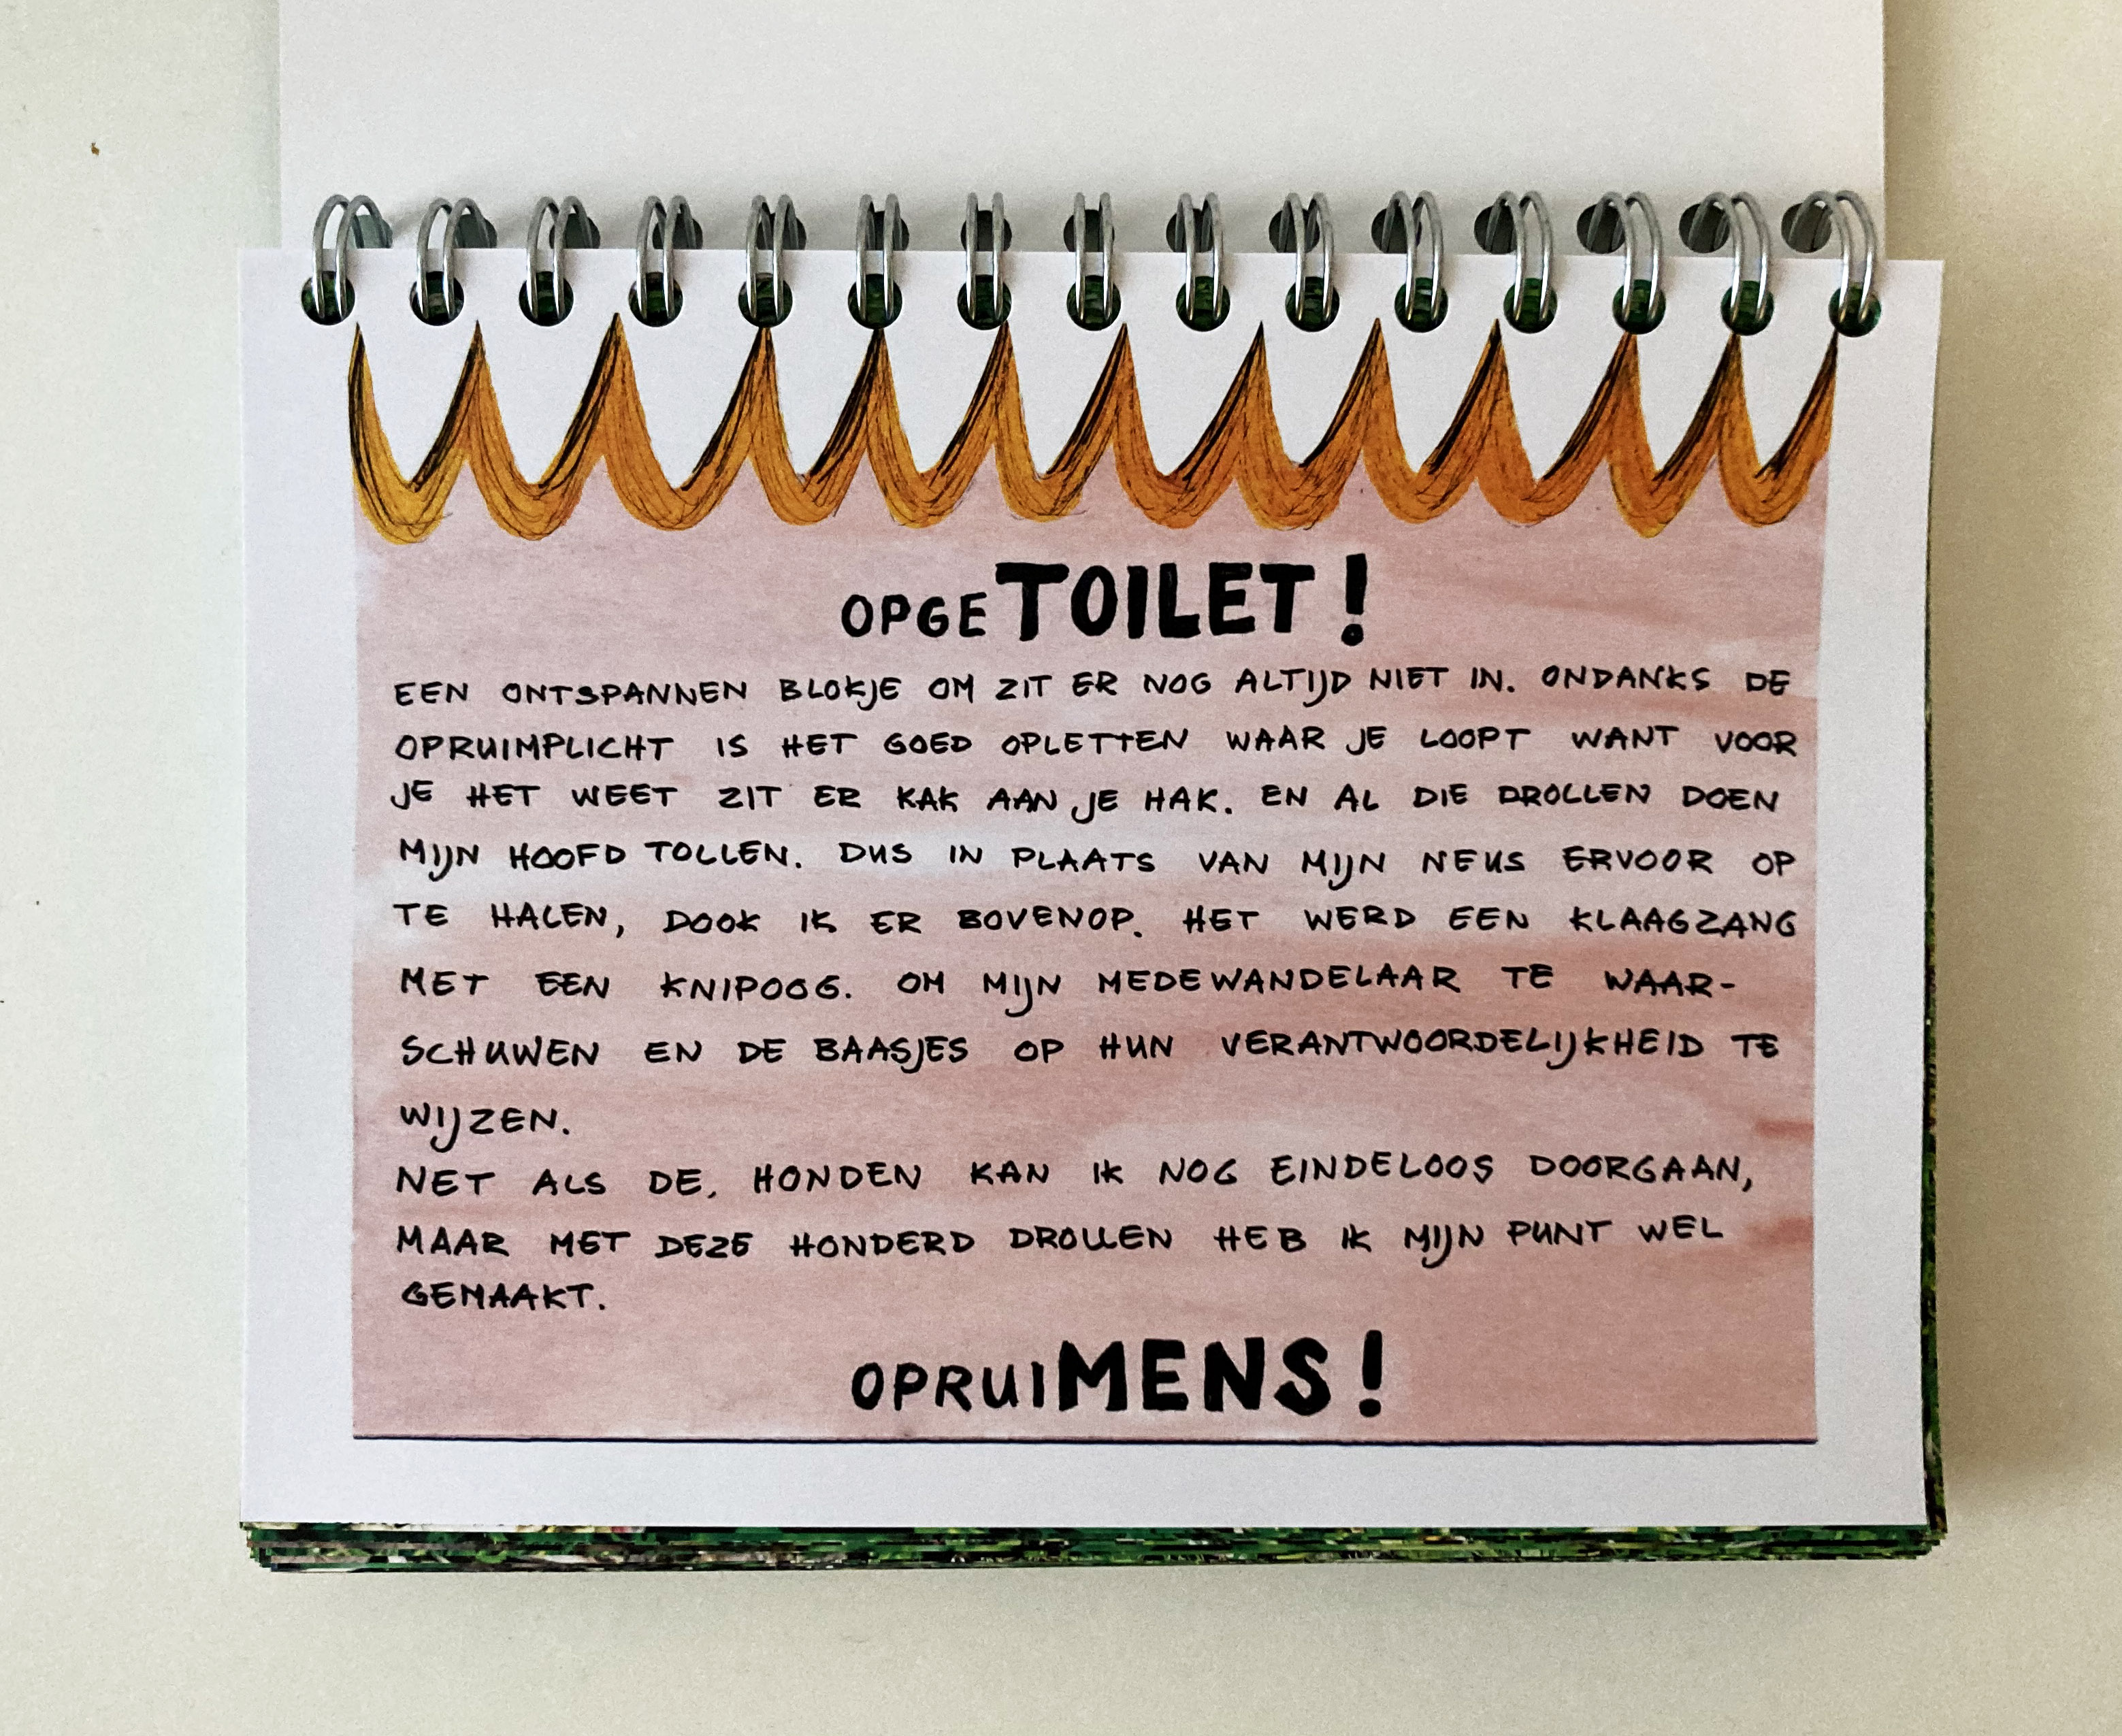 OPGETOILET!
EEN ONTSPANNEN BLOKJE OM ZIT ER NOG ALTIJD NIET IN. ONDANKS DE
OPRUIMPLICHT IS HET GOED OPLETTEN WAAR JE LOOPT WANT VOOR
JE HET WEET ZIT ER KAK AAN JE HAK. EN AL DIE DROLLEN DOEN
MIJN HOOFD TOLLEN. DUS IN PLAATS VAN MIJN NEUS ERVOOR OP
TE HALEN, DOOK IK ER BOVENOP. HET WERD EEN KLAAGZANG
MET EEN KNIPOOG. OM MIJN MEDEWANDELAAR TE WAAR-
SCHUWEN EN DE BAASJES OP HUN VERANTWOORDELIJKHEID TE
WIJZEN.
NET ALS DE. HONDEN KAN IK NOG EINDELOOS DOORGAAN,
MAAR MET DEZE HONDERD DROLLEN HEB IK MIJN PUNT WEL
GEMAAKT.
OPRUIMENS!